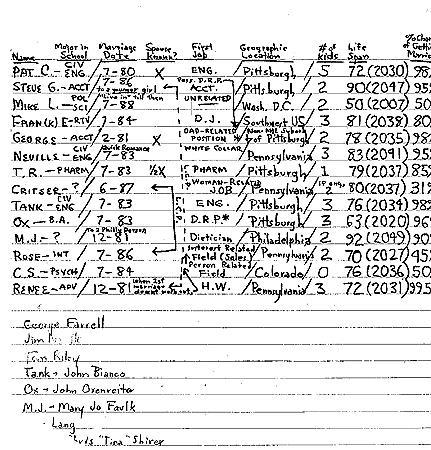 Name Major in School Marriage Date Spouse Known? First Job Geographic Location # of kids Life Span
PAT C. - CIV ENG 7-80 X ENG. Pittsburgh 5 72 (2030) 98
STEVE G. - ACCT 7-86 ACCT. Pittsburgh 2 90 (2047) 95
MIKE L. - POL SCI 7-88 UNRELATED Wash. D.C. 2 50 (2007) 50
FRAN(K) E - RTV 7-84 D.J. Southwest US 3 81 (2038) 80
GEORGE - ACCT 2-81 X ROAD-RELATED POSITION * of Pittsburgh 2 78 (2035) 98
NEVILLE - CIV ENG 7-83 WHITE COLLAR Pennsylvania 3 83 (2041) 95
T.R. - PHARM 7-83 ½X PHARM Pittsburgh 1 79 (2037) 85
CRITSER - ? 6-87 WOMAN-RELATED JOB Pennsylvania 2 80 (2037) 31
TANK - CIV ENG 7-83 ENG. Pittsburgh 3 76 (2034) 98
OX - B.A. 7-83 D.R.P * Pittsburgh 3 63 (2020) 96
M.J. - ? To a Philly Person 12-81 Dietician Philadelphia 2 92 (2049) 90
ROSE - INT 7-86 Interest Related Field (Sales) Pennsylvania 2 70 (2027) 45
C.S. - PSYCH 7-84 Person Related Field Colorado 0 76 (2036) 50
RENEE - ADV 12-81 H.W. Pennsylvania 3 72 (2031) 99.5
George Farrell
Jim
Tom Riley
Tank - John Bianco
Ox - John Oxenreiter
M.J. - Mary Jo Faulk
Lang
"Tina" Shirer